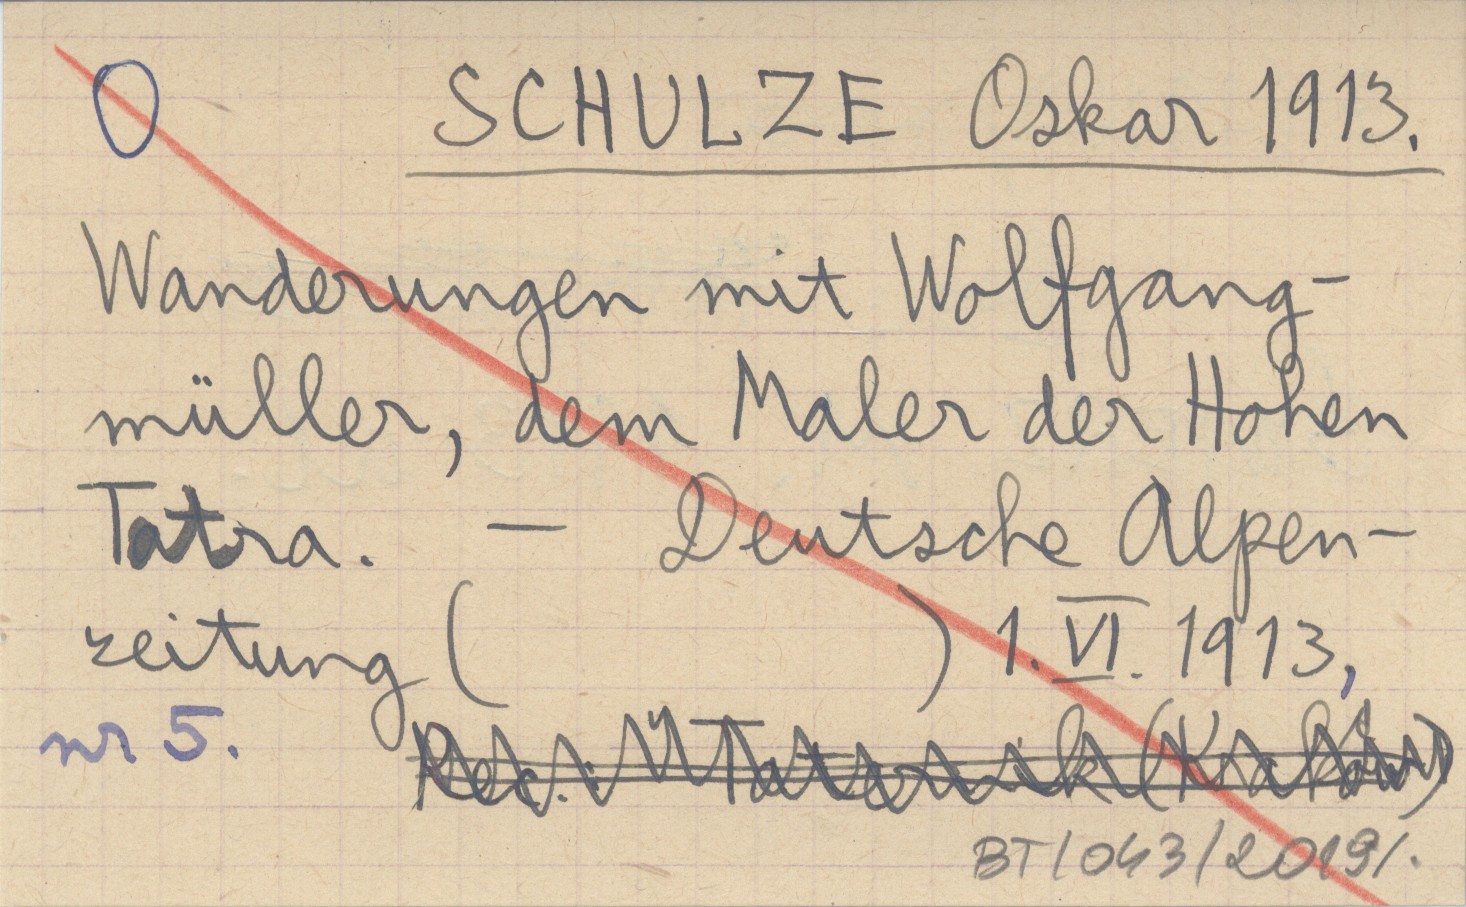 O SCHULZE Oskar 1913.
Wanderungen mit Wolfgang-
müller, dem Maler der Hohen
Tatra. — Deutsche Alpen-
zeitung ( ) 1. VI. 1913,
nr 5. Rec.: "Taternik (Kraków)
BT/043/2019/.